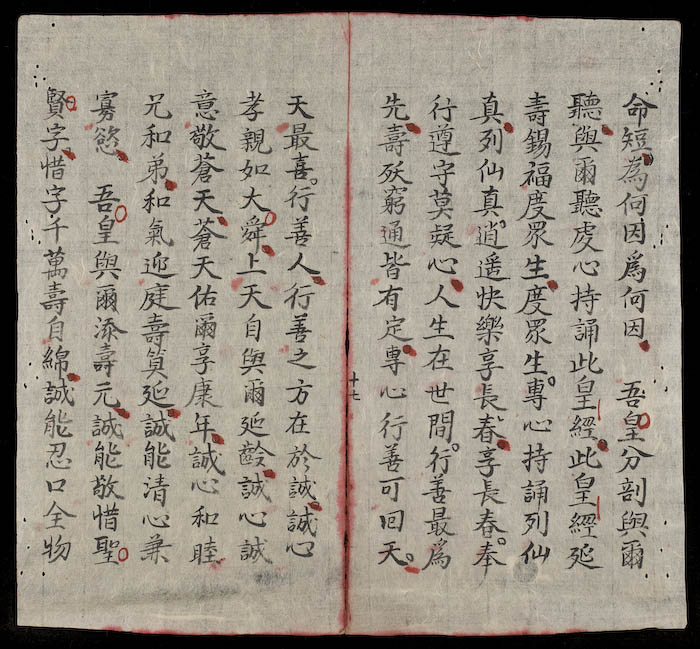 命短為何因為何因　吾皇分剖與爾
聽與爾聽虔心持誦此皇經此皇經延
壽錫福度眾生度眾生專心持誦列仙
真列仙真逍遥快樂享長春享長春奉
行遵守莫疑心人生在世間行善最為
先壽殀窮通皆有定專心行善可回天
十七
天最喜行善人行善之方在於誠誠心
孝親如大舜上天自與爾延齡誠心誠
意敬蒼天蒼天佑爾享康年誠心和睦
兄和弟和氣迎庭壽筭延誠能清心兼
寡慾　吾皇與爾添壽元誠能敬惜聖
賢字惜字千萬壽自綿誠能忍口全物